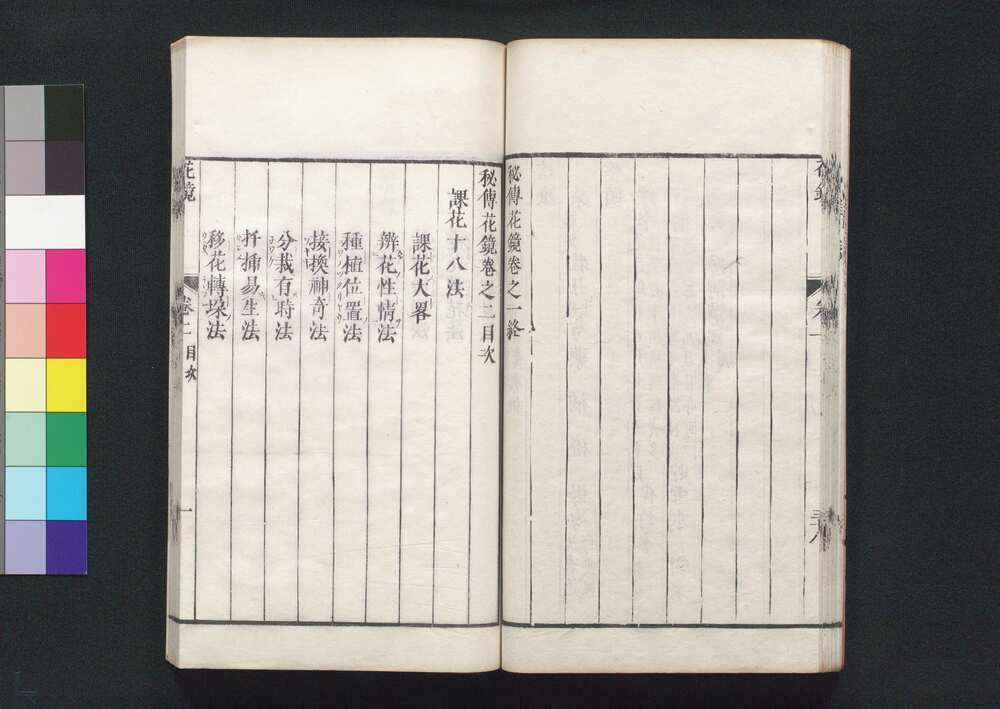 花鏡
三十八
秘傳花鏡卷之一終
秘傳花鏡卷之二目次
課花十八法
課花大畧
辨花性情法
種植位置法
接換神奇法
分栽有時法
扦揷易生法
移花轉垜法
花鏡
卷二 目次
一